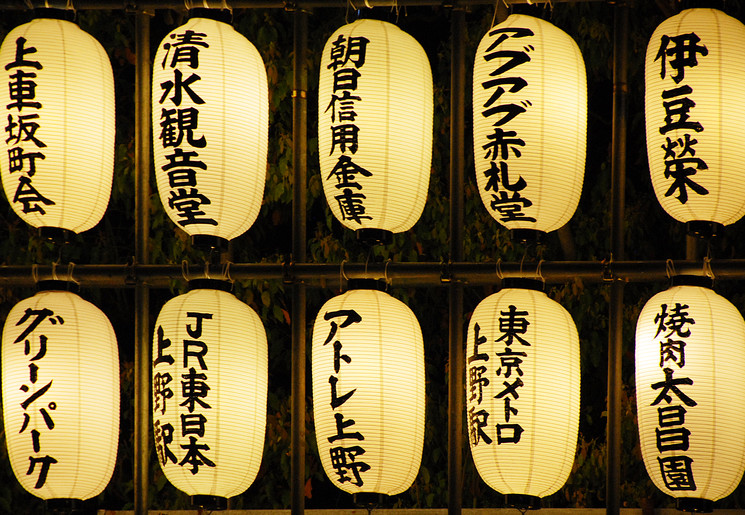 上車坂町会
清水観音堂
朝日信用金庫
アブアブ赤札堂
伊豆榮
グリーンパーク
JR東日本
上野駅
アトレ上野
東京メトロ
上野駅
焼肉太昌園